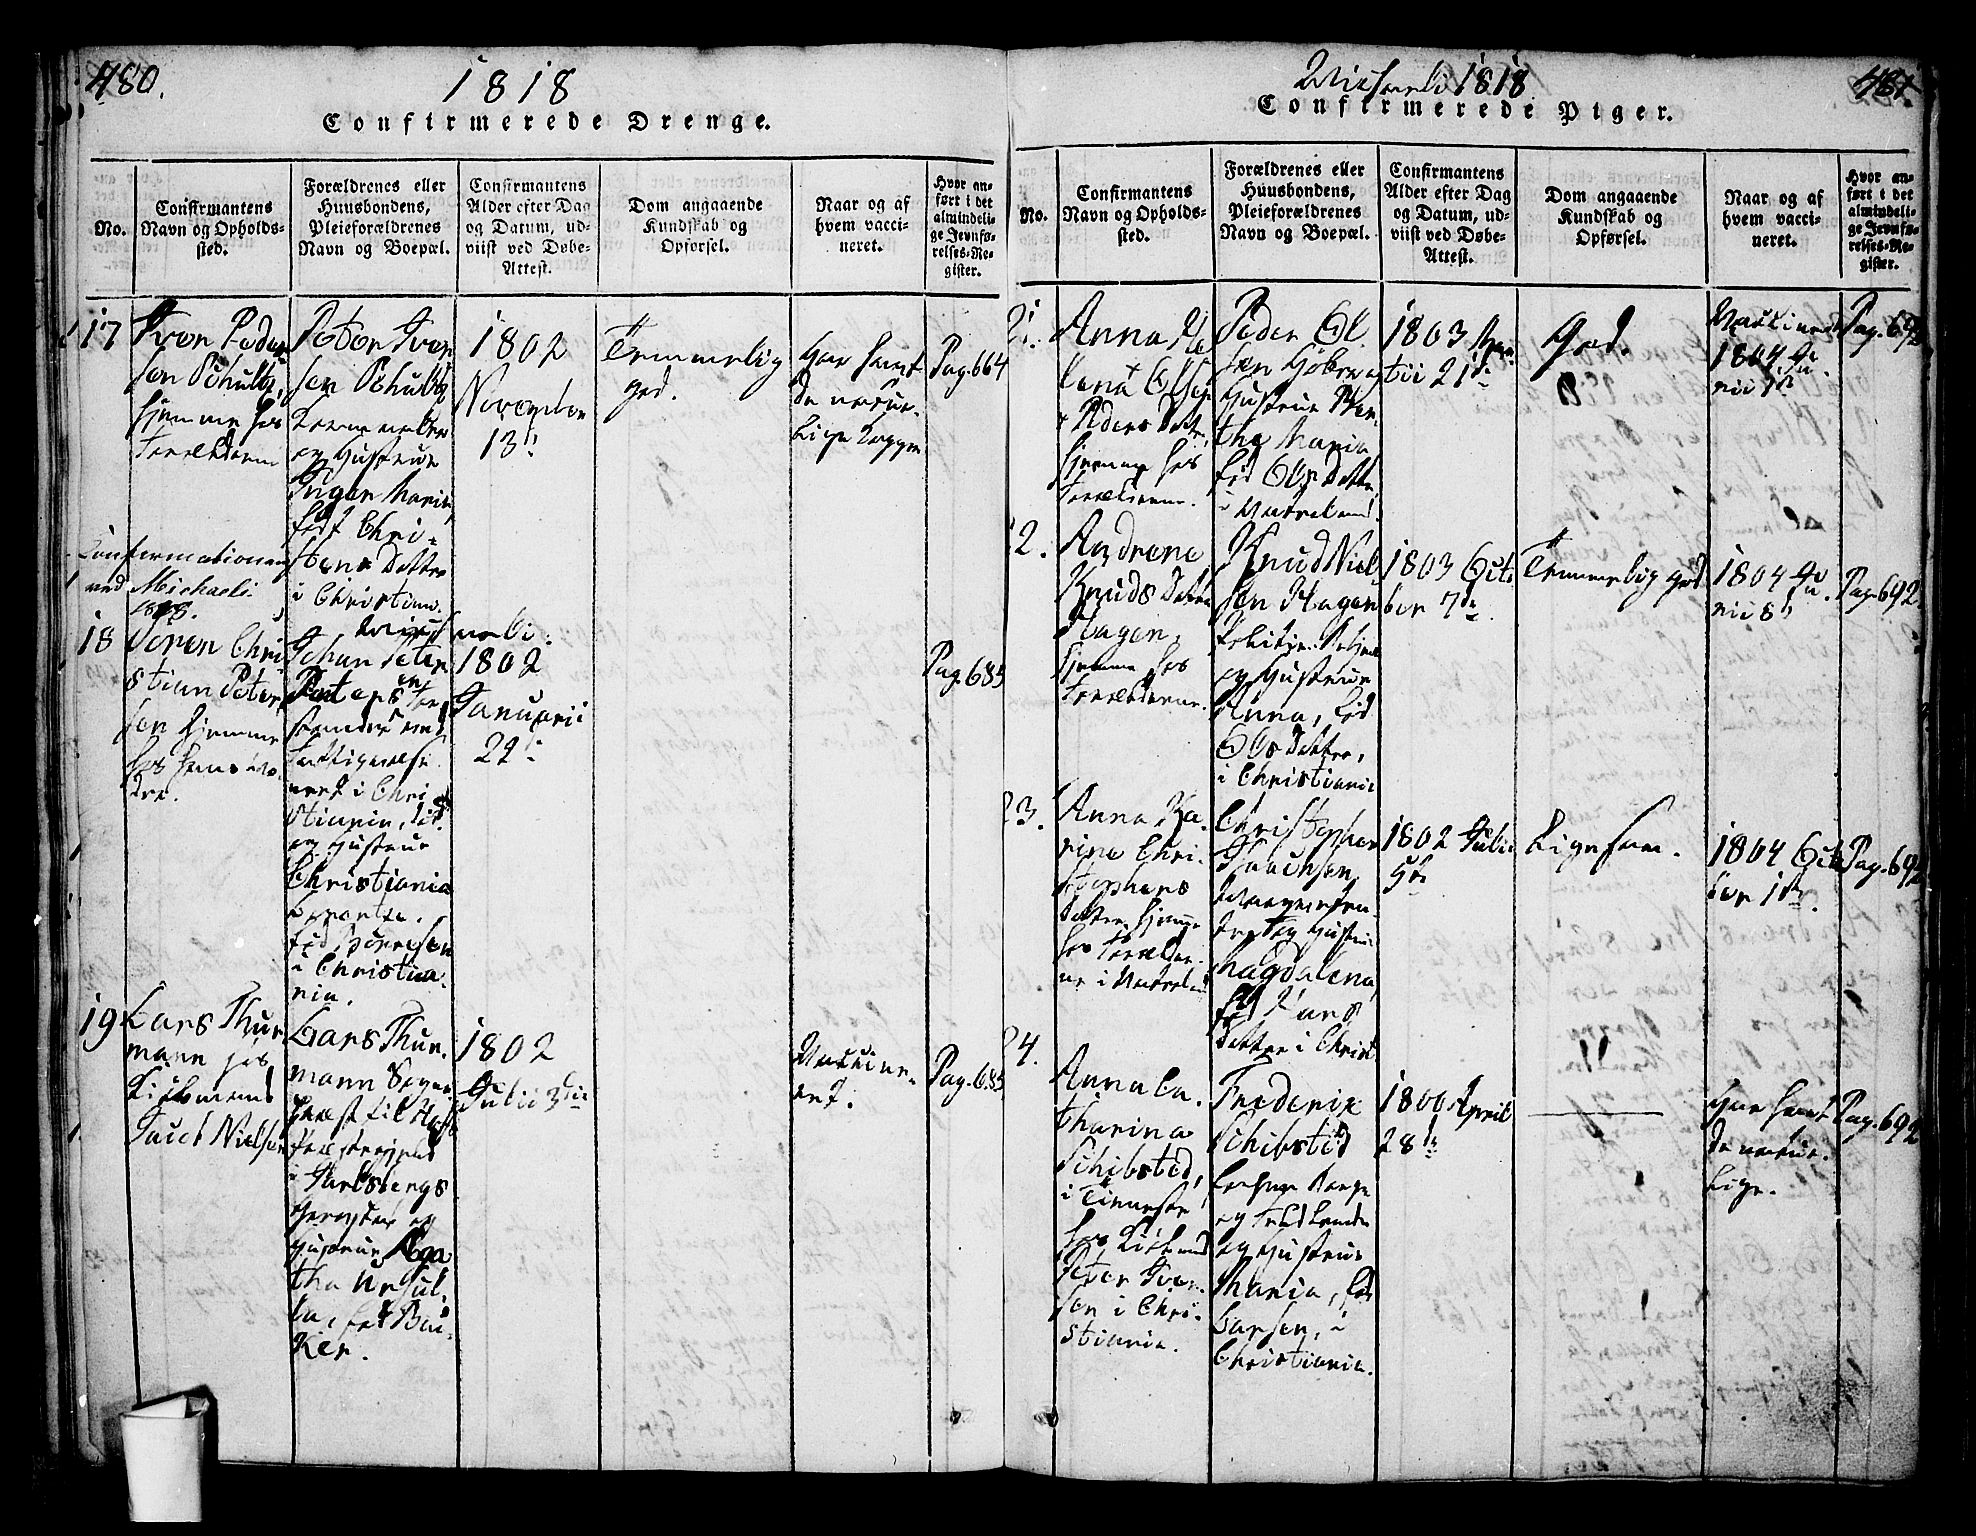 480.
1818
Confirmerede Drenge.
No.
Confirmantens
Navn og Opholds-
sted.
Forældrenes eller
Huusbondens,
Pleieforældrenes
Navn og Boepæl.
Confirmantens
Alder efter Dag
og Datum, ud-
viist ved Døbe-
Attest.
Dom angaaende
Kundskab og
Opførsel.
Naar og af
hvem vacci-
neret.
Hvor an-
ført i det
almindeli-
ge Jevnfø-
relses-Re-
gister.
17
Iver Peder
sen Schultz,
hjemme hos
Forældrene
Peter Iver
sen Schultz
og Hustrue
Inger Marie,
fød Chri-
stens Datter
i Christiania
1802
November
13de
Temmelig
god.
Har havt
de natur-
lige Kopper
Pag. 664
Confirmationen
ved Michaeli
1818.
18
Søren Chri
stian Peter
sen hjemme
hos hans Mo-
der.
Johan Peter
Petersen
i Chri
stiania,
og Hustrue
Christiania
fød Børresen
i Christia-
nia.
1802
Januarii
29de
Pag. 685
19
Lars Thur
mann hos
Kiøbmand
Jacob Nielsen
Lars Thur-
mann Sogne
Præst til
i Jarlsbergs
Grevskab og
Hustrue Aga
tha Ursul
la, fød Bac-
ker.
1802
Julii 3die
Vaccine-
ret.
Pag. 685
Michaeli 1818
481.
Confirmerede Piger.
No.
Confirmantens
Navn og Opholds-
sted.
Forældrenes eller
Huusbondens,
Pleieforældrenes
Navn og Boepæl.
Confirmantens
Alder efter Dag
og Datum, ud-
viist ved Døbe-
Attest.
Dom angaaende
Kundskab og
Opførsel.
Naar og af
hvem vacci-
neret.
Hvor an-
ført i det
almindeli-
ge Jevnfø-
relses-Re-
gister.
21.
Anna He
lena Olsen
Peders Datter,
hjemme hos
Forældrene.
Peder Ol
sen
Hustrue Ber
the Maria
fød Ols Datter,
1803
21de
God.
Vaccineret
1804 Ju
nii 7de
Pag. 692
22.
Andrea
Knuds Datter
Hagen,
hjemme hos
Forældrene.
Knud Niel
sen Hagen
og Hustrue
Anna, fød
Ols Datter,
i Christiania
1803 Octo
ber 7de
Temmelig god
1804 Ju
nii 8de
Pag. 692
23.
Anna Ka
rine Chri-
stophers
Datter, hjemme
hos Forældre
Christopher
Isaachsen
og Hustrue
Magdalena,
fød Lars
Datter i Christ.
1802 Julii
5te
Ligesaa.
1804 Octo
ber 1ste.
Pag. 692
24.
Anna Ca
tharina
Schibsted,
i Tieneste
hos Kiøbmand
Peter Iver
sen i Chri-
stiania.
Frederik
Schibsted
og Hustrue
Maria, fød
Larsen, i
Christiania.
1800 April
28de
Har havt
de natur-
lige.
Pag. 692